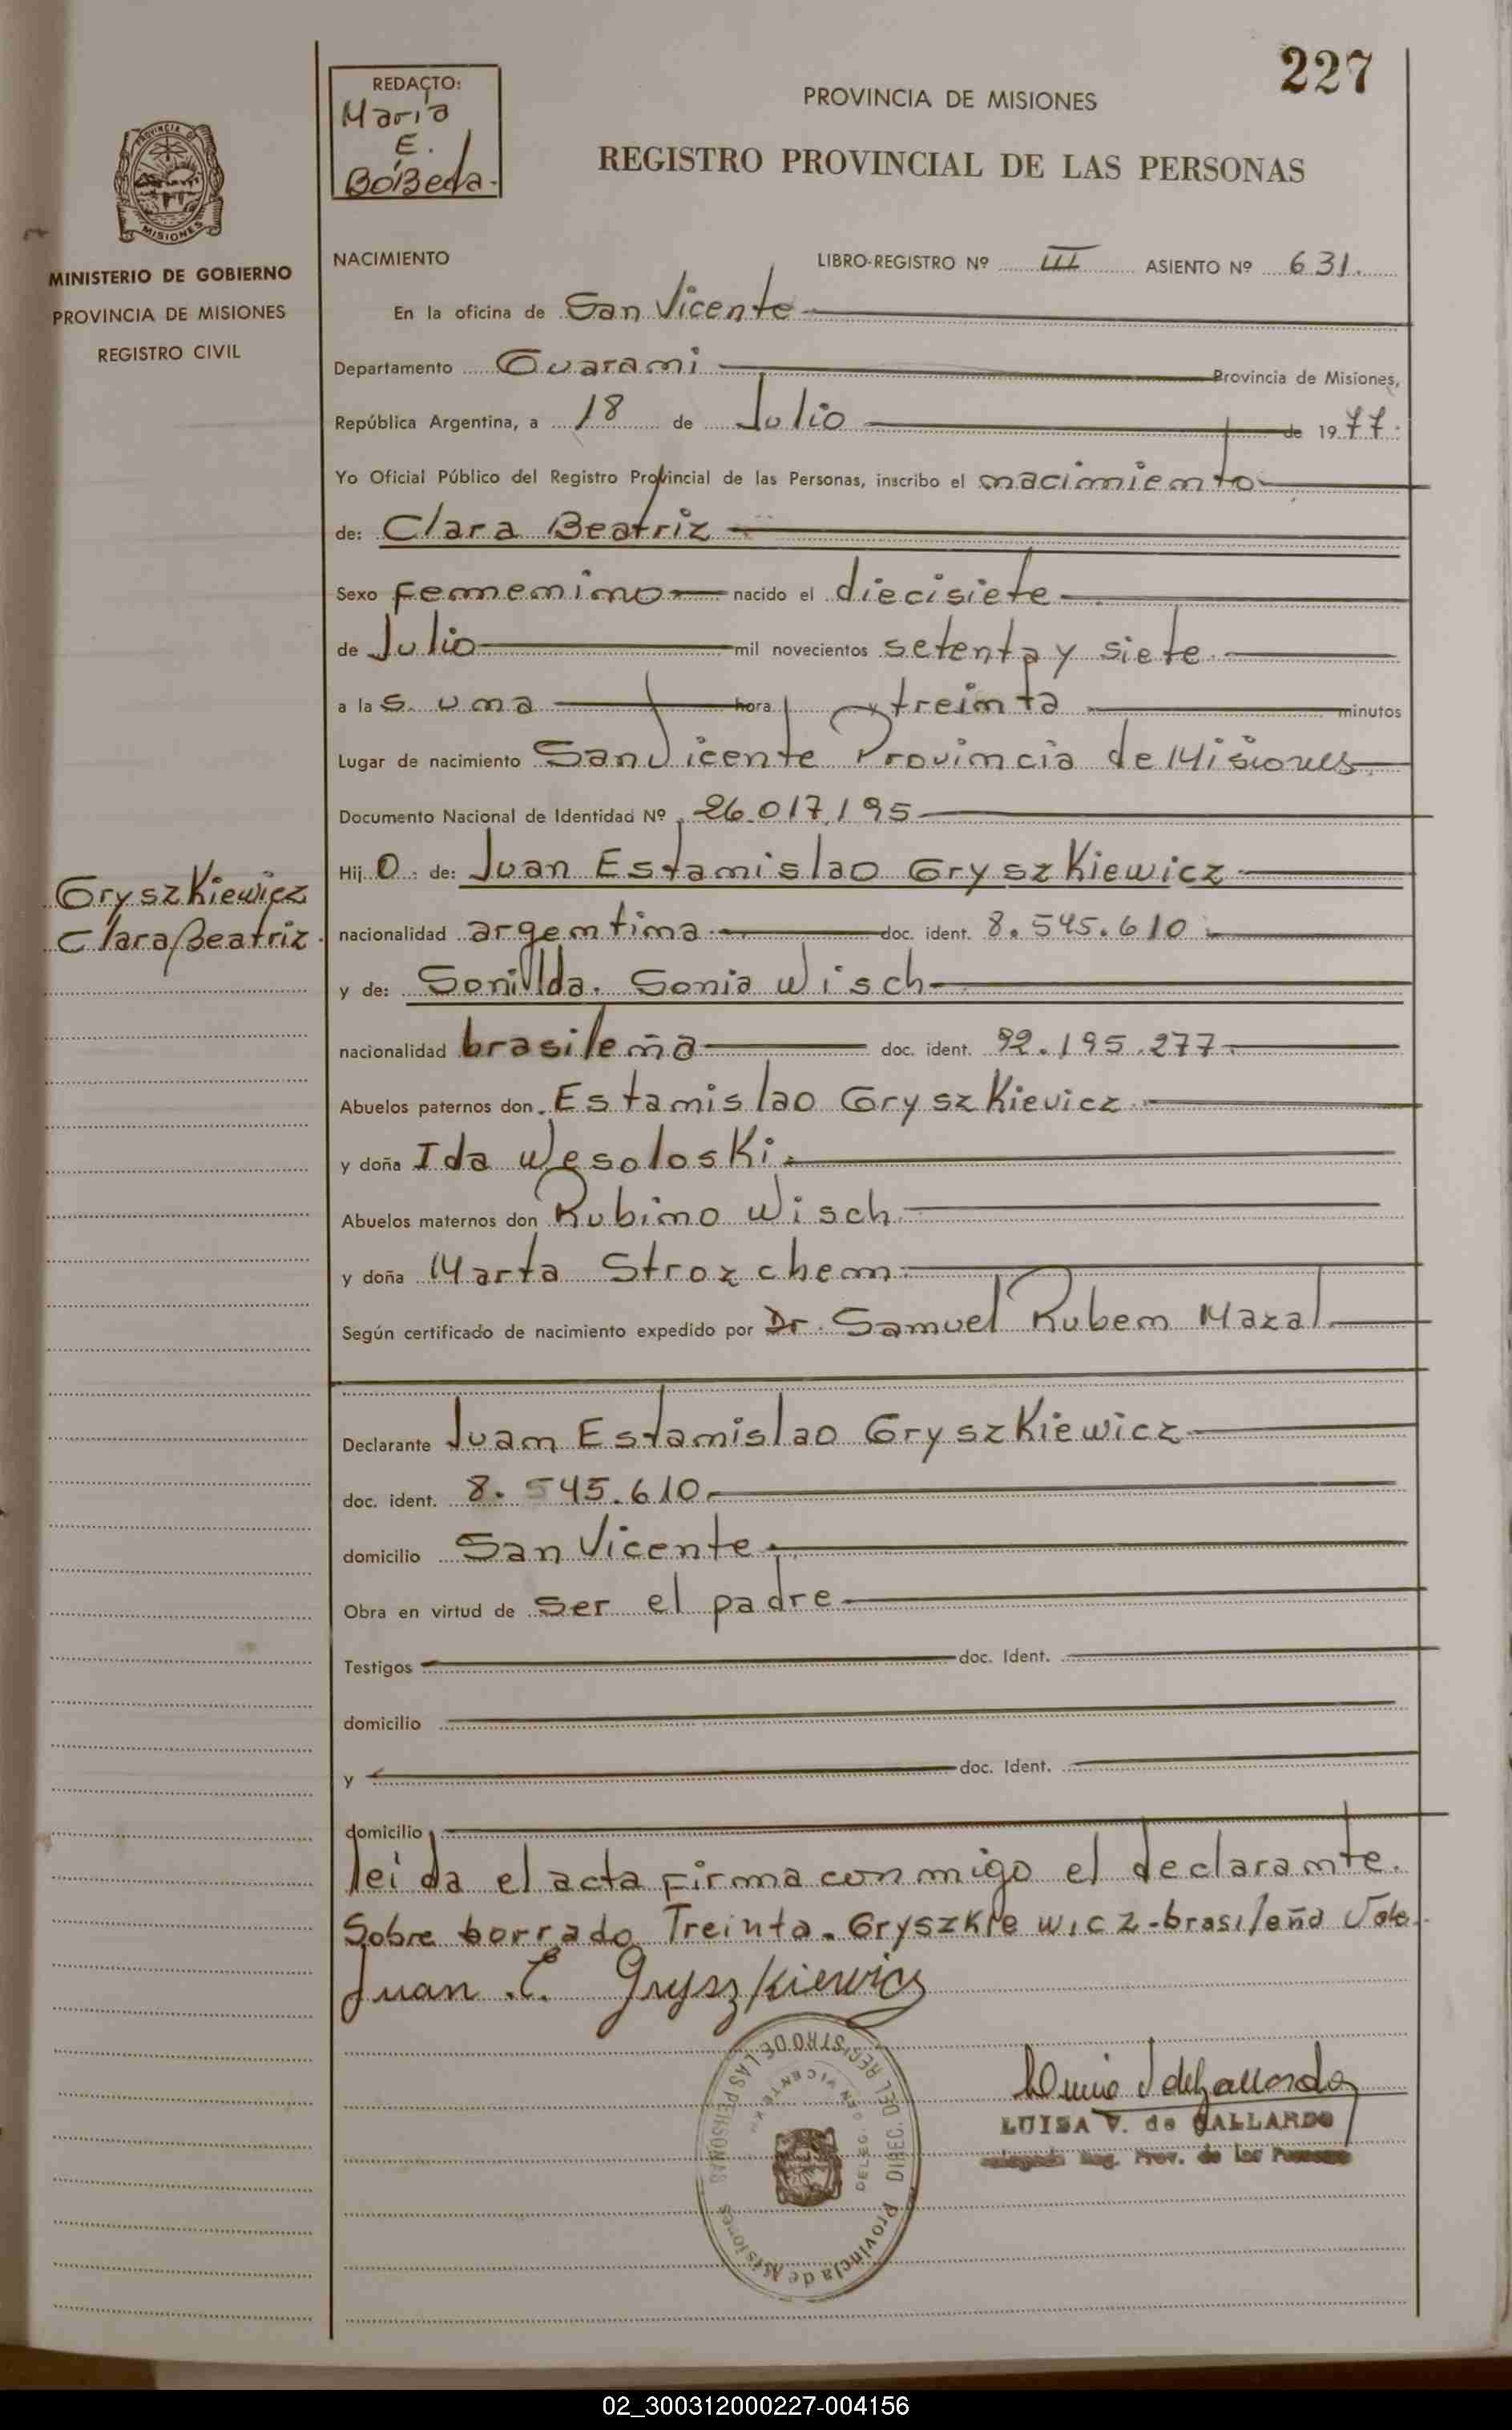 227
REDACTO:
Maria
E.
Bobeda.
PROVINCIA DE MISIONES
REGISTRO PROVINCIAL DE LAS PERSONAS
MISIONES
MINISTERIO DE GOBIERNO
PROVINCIA DE MISIONES
REGISTRO CIVIL
NACIMIENTO LIBRO-REGISTRO Nº III ASIENTO Nº 631.
En la oficina de San Vicente
Departamento Guarami Provincia de Misiones,
República Argentina, a 18 de Julio de 1977.
Yo Oficial Público del Registro Provincial de las Personas, inscribo el nacimiento
de: Clara Beatriz
Sexo femenino nacido el diecisiete
de Julio mil novecientos setenta y siete
a las una hora y treinta minutos
Lugar de nacimiento San Vicente Provincia de Misiones
Documento Nacional de Identidad Nº 26.017.195
Hijo de: Juan Estanislao Gryszkiewicz
Gryszkiewicz
Clara Beatriz.
nacionalidad argentina doc. ident. 8.545.610
y de: Sonillda. Sonia Wisch
nacionalidad brasileña doc. ident. 92.195.277.
Abuelos paternos don Estanislao Gryszkievicz
y doña Ida Wesoloski
Abuelos maternos don Rubino Wisch
y doña Marta Strozchen
Según certificado de nacimiento expedido por Dr. Samuel Ruben Mazal
Declarante Juan Estanislao Gryszkiewicz
doc. ident. 8.545.610
domicilio San Vicente
Obra en virtud de ser el padre
Testigos doc. Ident.
domicilio
y doc. Ident.
domicilio
leida el acta firma conmigo el declarante.
Sobre borrado Treinta. Gryszkiewicz-brasileña Vale.
Juan E. Gryszkiewicz
DIREC. DEL REGISTRO DE LAS PERSONAS
Provincia de Misiones
LUISA V. de GALLARDO
Reg. Prov. de las Personas
02_300312000227-004156